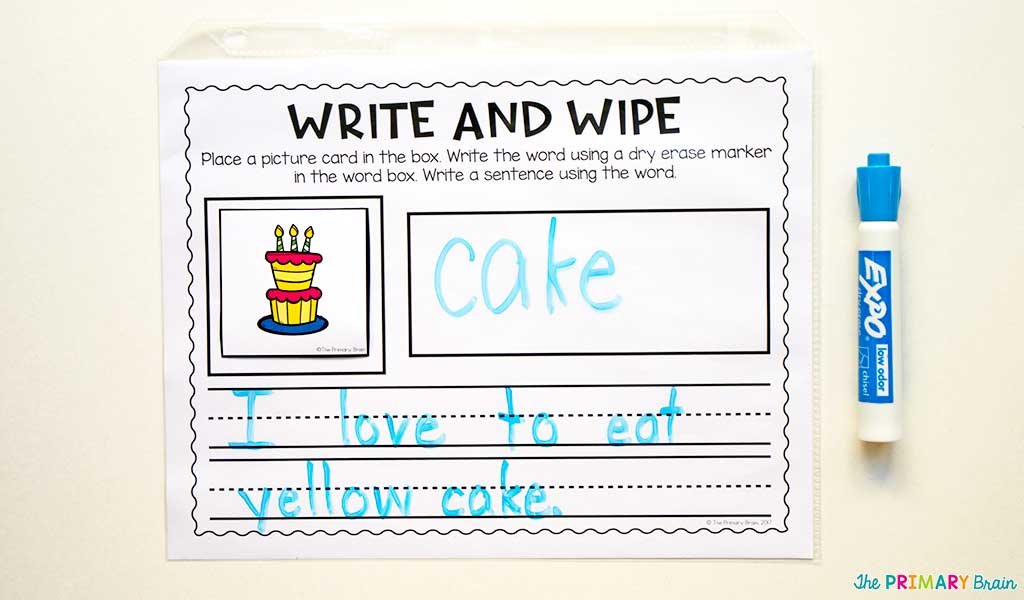 WRITE AND WIPE
Place a picture card in the box. Write the word using a dry erase marker
in the word box. Write a sentence using the word.
©The Primary Brain
cake
I love to eat
yellow cake.
© The Primary Brain, 2017
EXPO
low odor
chisel
The PRIMARY Brain